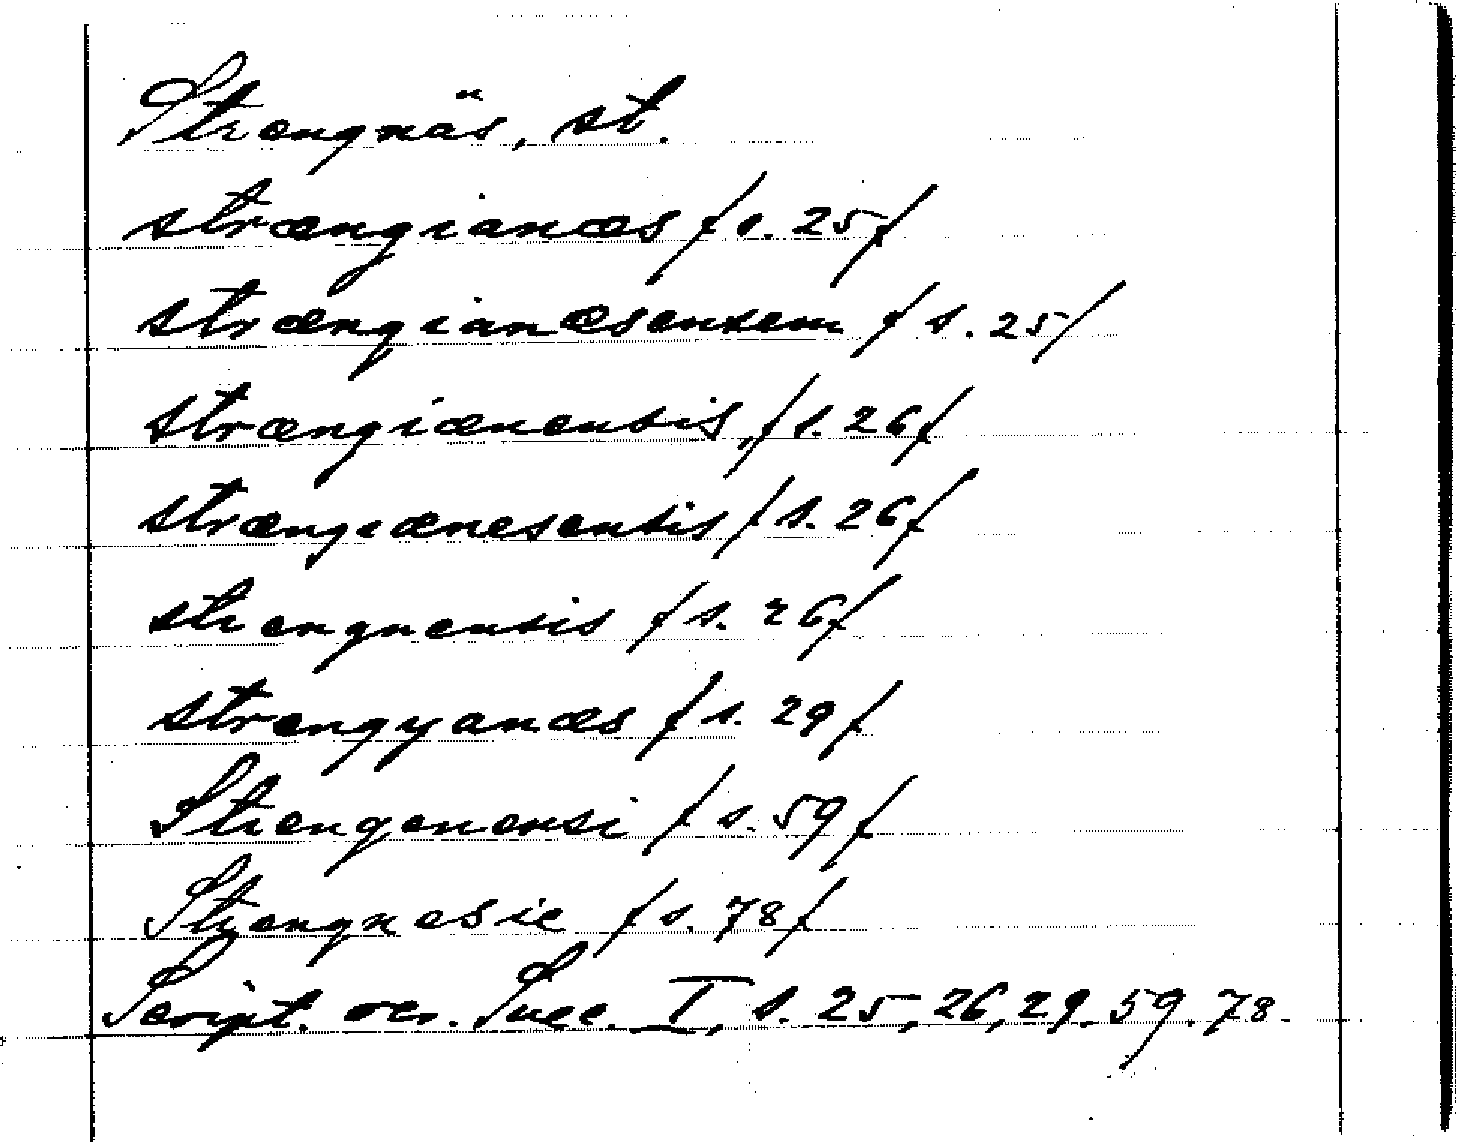 Strengnäs, st.
strængianæs / s. 25 /
strængianæsensem / s. 25 /
strængiænensis, / s. 26 /
strængiænesensis / s. 26 /
strengnensis / s. 26 /
strengyanæs / s. 29 /
Strengenensi / s. 59 /
Strengnesie / s. 78 /
Script. rer. Suec. I, s. 25, 26, 29. 59. 78.